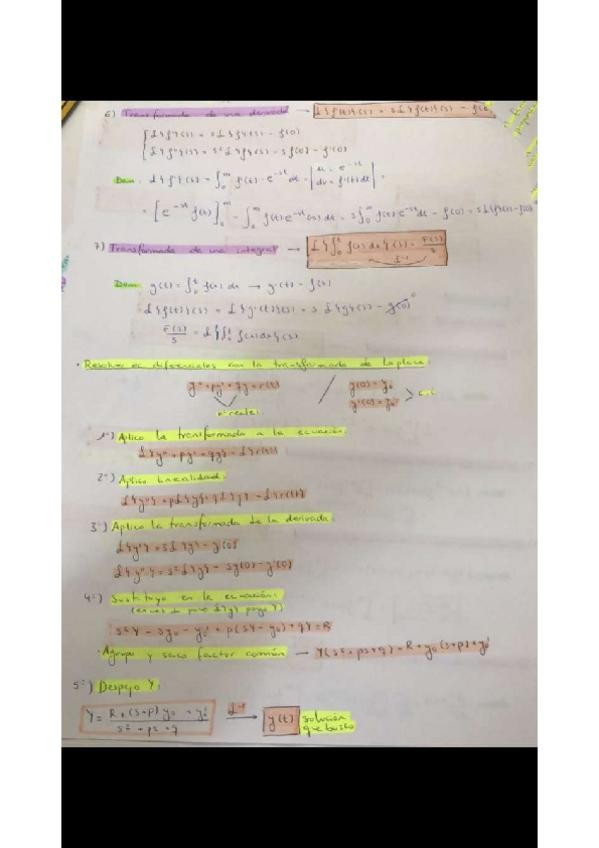 6) Transformada de una derivada → L{f'(t)}(s) = sL{f(t)}(s) - f(0)
L{f'}(s) = sL{f}(s) - f(0)
L{f''}(s) = s²L{f}(s) - sf(0) - f'(0)
Dem: L{f'}(s) = ∫₀^∞ f'(t)·e^{-st} dt = | u = e^{-st} dv = f'(t)dt | =
= [e^{-st} f(t)]₀^∞ - ∫₀^∞ f(t)e^{-st}(-s) dt = s∫₀^∞ f(t)e^{-st}dt - f(0) = sL{f}(s) - f(0)
7) Transformada de una integral → L{∫₀^t f(x)dx}(s) = F(s)/s
L⁻¹
Dem: g(t) = ∫₀^t f(x) dx → g'(t) = f(t)
L{f(t)}(s) = L{g'(t)}(s) = s L{g}(s) - g(0) 0
F(s)/s = L{∫₀^t f(x)dx}(s)
· Resolver ec diferenciales con la transformada de Laplace:
y'' + py' + qy = r(t) / y(0) = y₀
nº reales y'(0) = y₀' > C.I
1º) Aplico la transformada a la ecuación:
L{y'' + py' + qy} = L{r(t)}
2º) Aplico linealidad:
L{y''} + pL{y'} + qL{y} = L{r(t)}
3º) Aplico la transformada de la derivada:
L{y'} = sL{y} - y(0)
L{y''} = s²L{y} - sy(0) - y'(0)
4º) Sustituyo en la ecuación:
(en vez de poner L{y} pongo Y)
s²Y - sy₀ - y₀' + p(sY - y₀) + qY = R
· Agrupo y saco factor común → Y(s² + ps + q) = R + y₀(s+p) + y₀'
5º) Despejo Y:
Y = R + (s+p)y₀ + y₀' / s² + ps + q L⁻¹ → y(t) solución
que busco